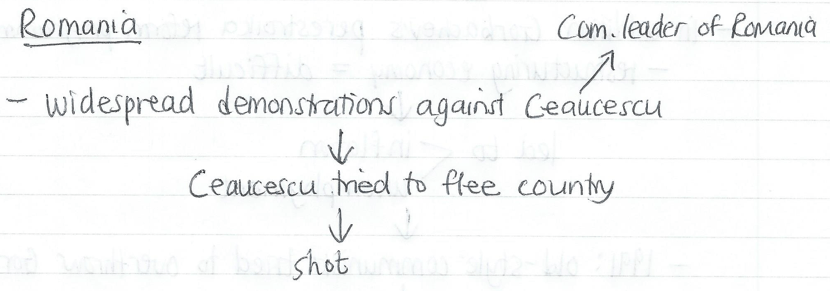 Romania
Com. leader of Romania
- widespread demonstrations against Ceaucescu
↓
Ceaucescu tried to flee country
↓
shot